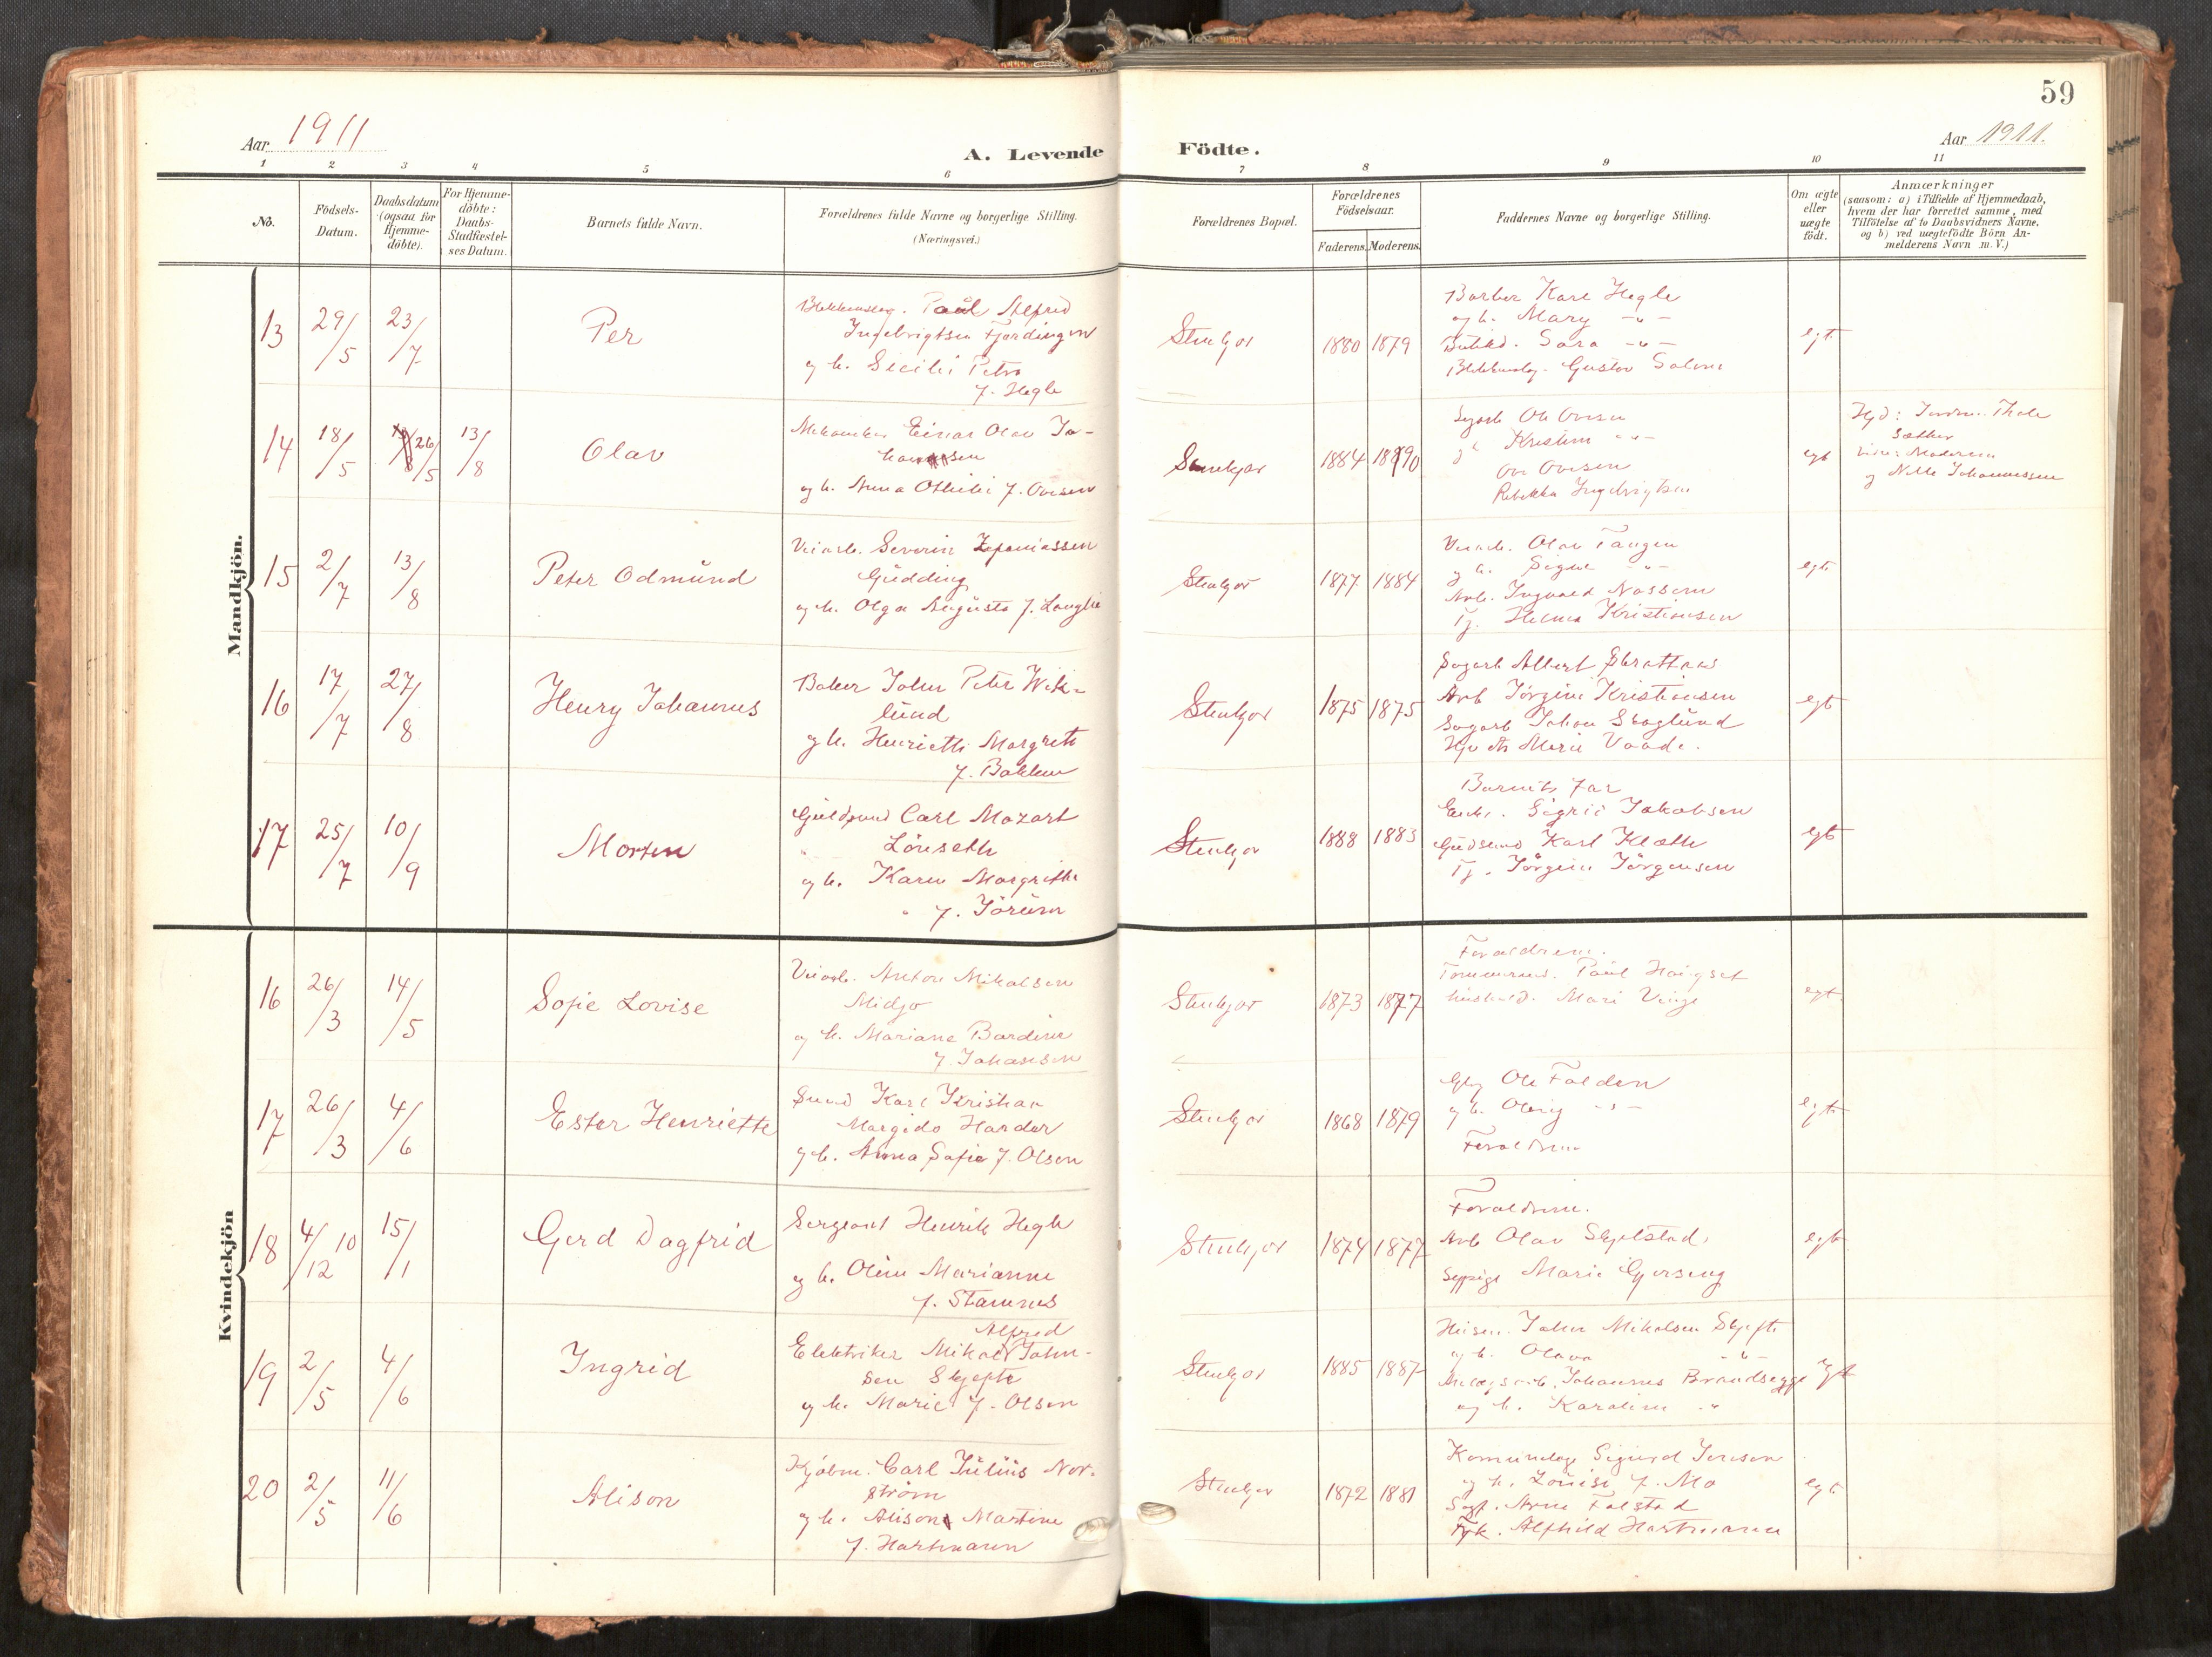 59
Aar 1911
Aar 1911.
A. Levende Födte.
1 2 3 4 5 6 7 8 9 10 11
No.
Födsels-
Datum.
Daabsdatum
(ogsaa for
Hjemme-
döbte).
For Hjemme-
döbte:
Daabs-
Stadfæstel-
ses Datum.
Barnets fulde Navn.
Forældrenes fulde Navne og borgerlige Stilling.
(Næringsvei.)
Forældrenes Bopæl.
Forældrenes
Födselsaar.
Faderens. Moderens.
Faddernes Navne og borgerlige Stilling.
Om ægte
eller
uægte
födt.
Anmærkninger
(saasom: a) i Tilfælde af Hjemmedaab,
hvem der har forrettet samme, med
Tilföielse af to Daabsvidners Navne,
og b) ved uægtefödte Börn An-
melderens Navn m. V.)
Mandkjön.
13 29/5 23/7 Per
Paul Alfred
Ingebrigtsen Fjerdingen
og h. Sicili Petra
f. Hegle
Stenkjer 1880 1879
Barber Karl Hegle
og h. Mary -"-
Sara -"-
Gustav
egt.
14 18/5 26/5 13/8 Olav
Mekaniker Einar Olav Jo-
hannesen
og h. Anna Othilie f. Ovesen
Stenkjer 1884 1890
Ole Ovesen
Kristine -"-
Ove Ovesen
Rebekka Ingebrigtsen
egt
Hjd: Thale
Sæther
Moderen
og Nelle Johannessen
15 2/7 13/8 Peter Odmund
Veiarb. Severin Zefaniassen
Gudding
og h. Olga Augusta f. Langlie
Stenkjer 1877 1884
Veiarb. Olav Tangen
og h. Signe -"-
Arb. Ingvald Nossum
Tj. Helma Kristiansen
egt.
16 17/7 27/8 Henry Johannes
Baker John Peter Wik-
lund
og h. Henriette Margrete
f. Bakken
Stenkjer 1875 1875
Sagarb Albert Skrattaas
Arb Jörgine Kristiansen
Sagarb Johan Skoglund
Marie Vaade.
egt
17 25/7 10/9 Morten
Guldsmed Carl Mozart
Lönseth
og h. Karen Margrethe
f. Jörum
Stenkjer 1888 1883
Barnets far
Enke. Sigrid Jakobsen
Guldsmed Karl Klæth
Tj. Jörgine Jörgensen
egt
Kvindekjön
16 26/3 14/5 Sofie Lovise
Veiarb. Anton Mikalsen
Midjo
og h. Mariane Bardine
f. Johansen
Stenkjer 1873 1877
Forældrene.
Tömmermd. Paul Haugset
Mari Vinje
egt.
17 26/3 4/6 Ester Henriette
Smed Karl Kristian
Margido Harder
og h. Anna Sofie f. Olsen
Stenkjer 1868 1879
Ole Folden
og h. -"-
Forældrene
egt.
18 4/12 10 15/1 Gerd Dagfrid
Sergeant Henrik Hegle
og h. Oline Marianne
f. Stamnes
Stenkjer 1874 1877
Forældrene.
Arb Olav Skjelstad.
Sypige Marie Gjersing
egt.
19 2/5 4/6 Ingrid
Alfred
Elektriker Mikael John-
sen Skjefte
og h. Marie f. Olsen
Stenkjer 1885 1887
John Mikalsen Skjefte
og h. Olava -"-
Anlægsarb. Johannes Brandsegge
og h. Karoline -"-
egt
20 2/5 11/6 Alison
Kjöbm. Carl Julius Nor-
ström
og h. Alison Martine
f. Hartmann
Stenkjer 1872 1881
Sigurd Iversen
og h. Louise f. Mo
Sagf. Arne Falstad
Frk. Alfhild Hartmann
egt.